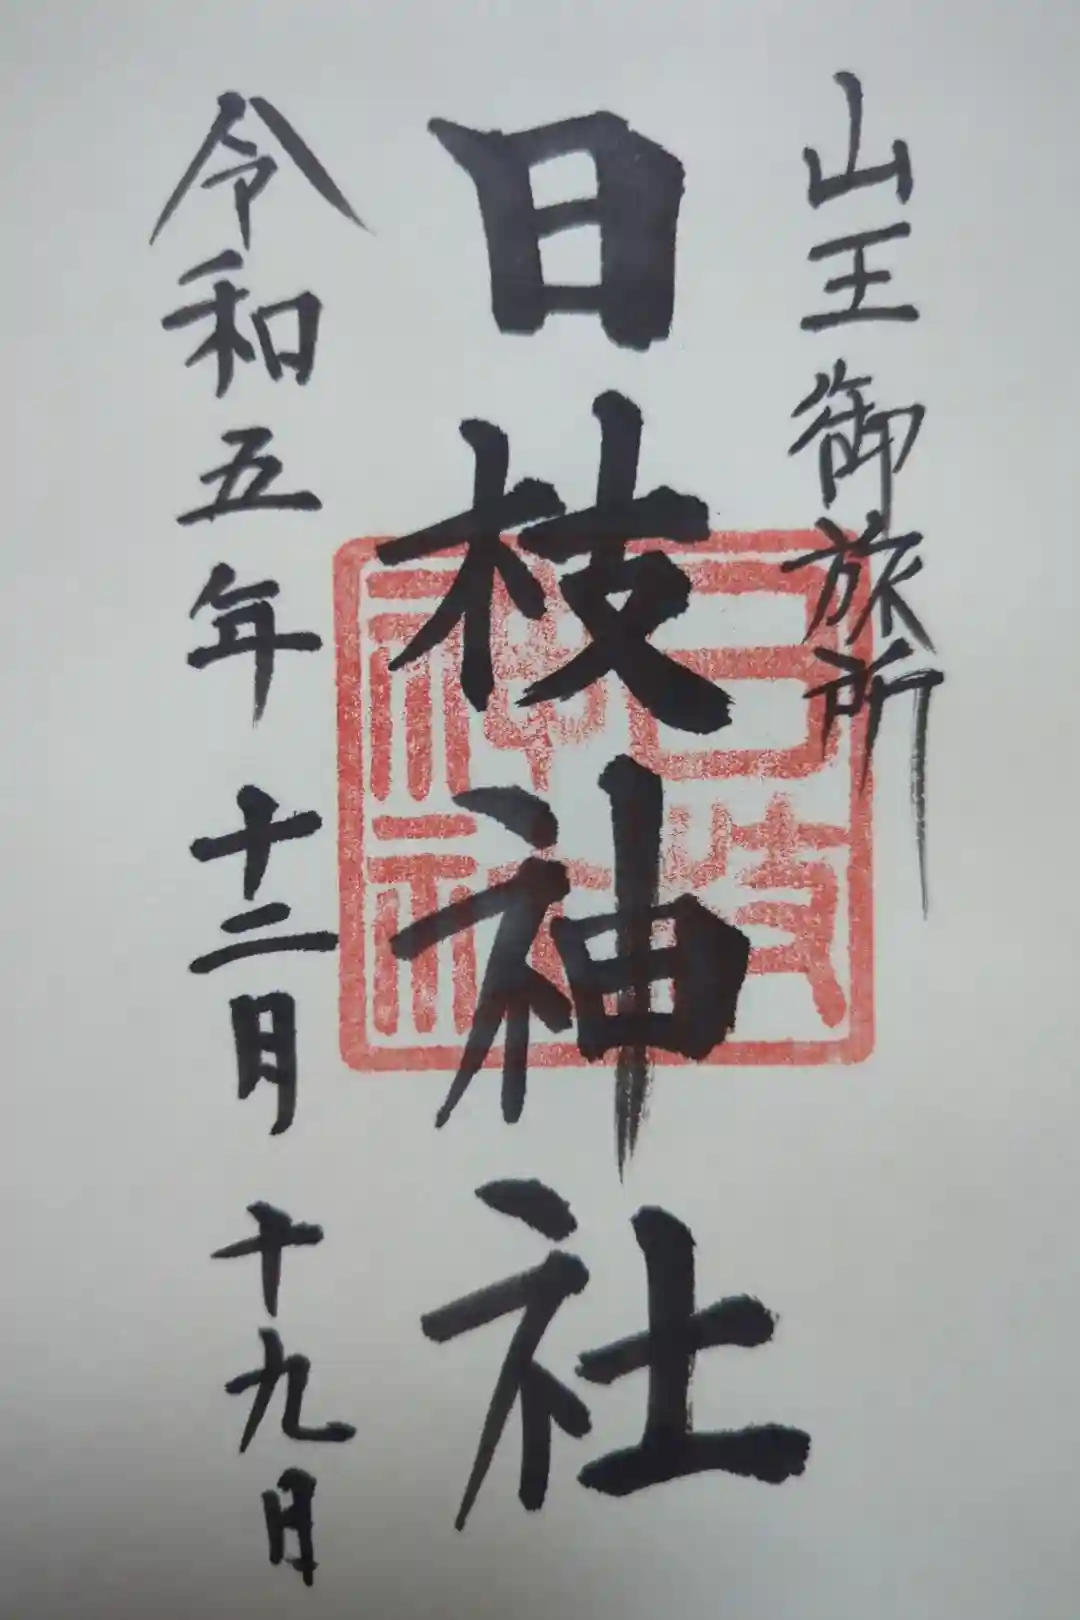 山王御旅所
日枝神社
令和五年十二月十九日
日枝神社